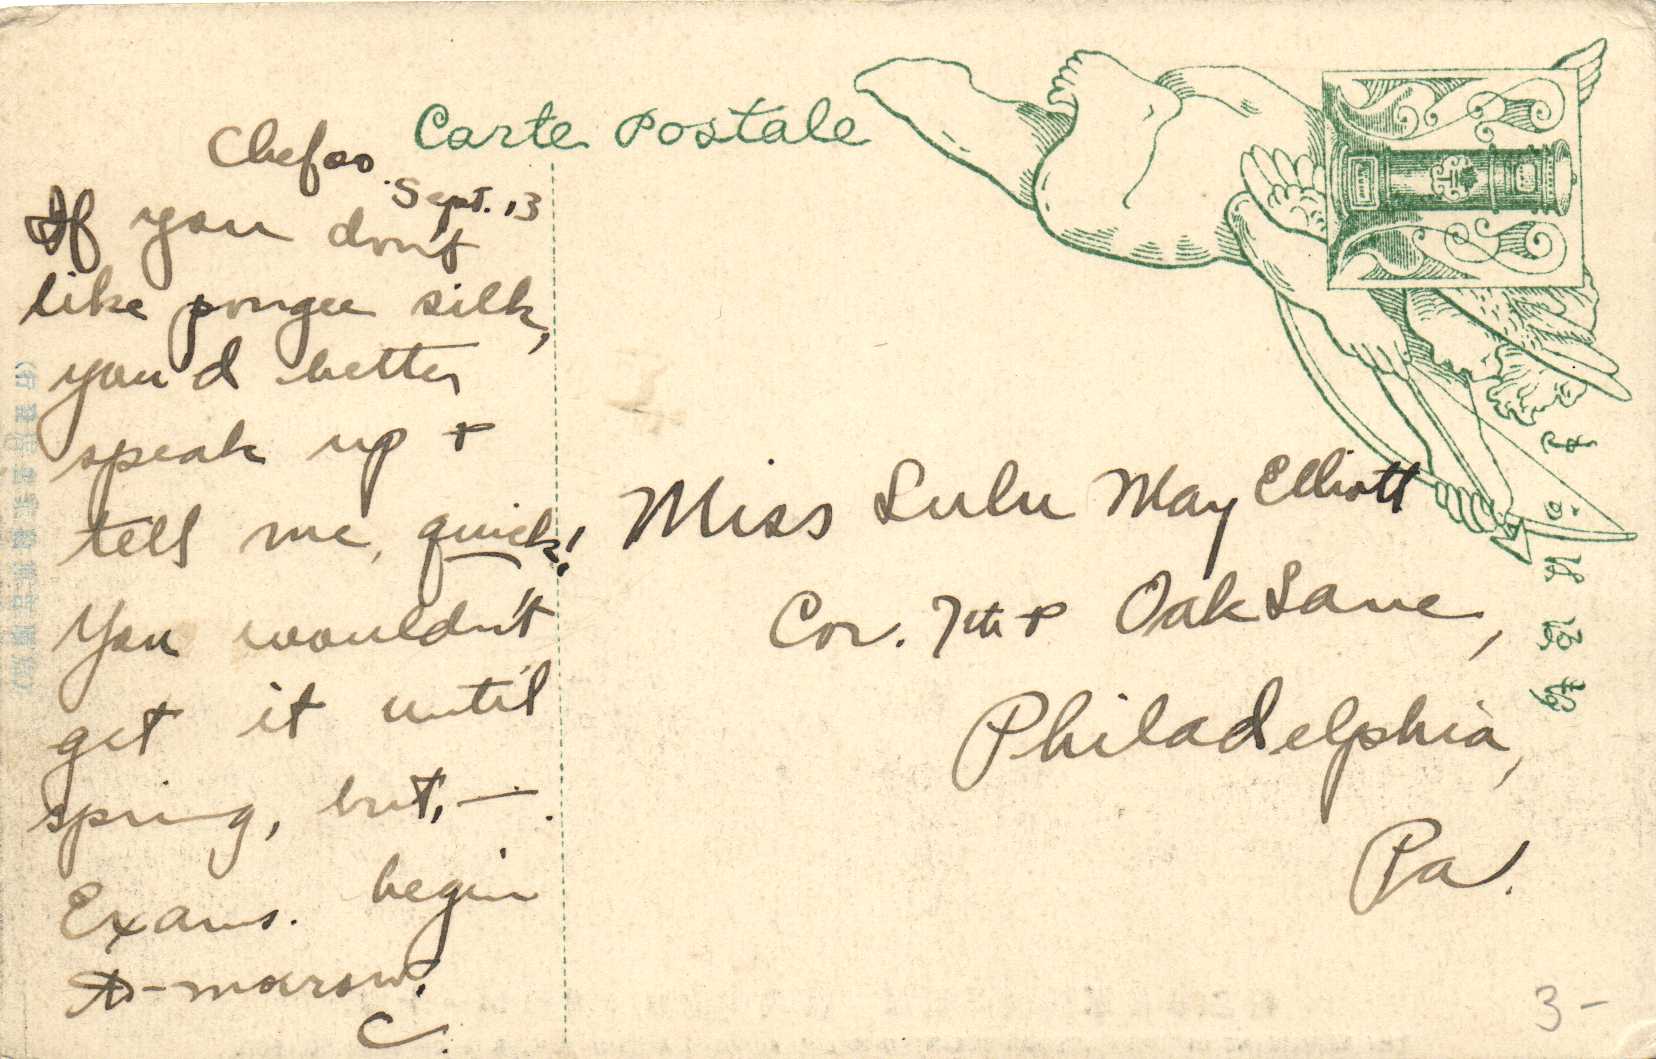 Carte Postale
Chefoo
Sept. 13
If you don't
like pongee silk,
you'd better
speak up +
tell me, quick!
You wouldn't
get it until
spring, but, —.
Exams. begin
to-morrow.
C.
Miss Lulu May Elliott
Cor. 7th + Oak Lane,
Philadelphia,
Pa.
3-